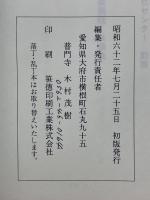 昭和六十二年七月二十五日　初版発行
編集・発行責任者
愛知県大府市横根町石丸九十五
普門寺　木村茂樹
印刷　笹徳印刷工業株式会社
落丁・乱丁本はお取り替えいたします。